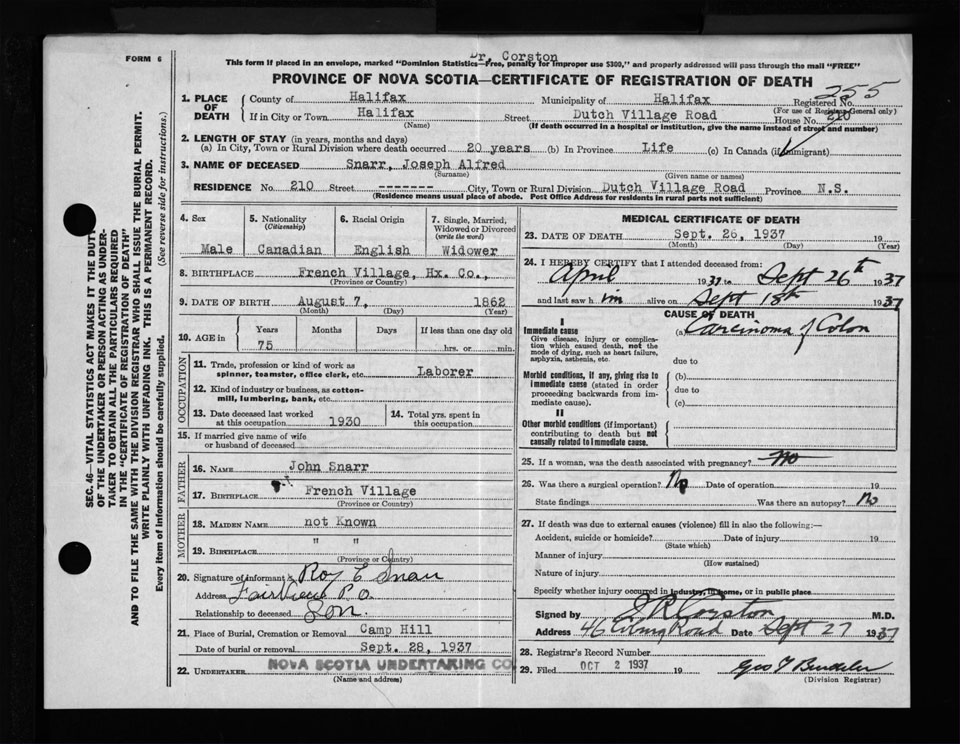 FORM 6
Dr. Corston
This form if placed in an envelope, marked "Dominion Statistics—Free, penalty for improper use $300," and properly addressed will pass through the mail "FREE"
PROVINCE OF NOVA SCOTIA—CERTIFICATE OF REGISTRATION OF DEATH
255
1. PLACE OF DEATH
County of Halifax Municipality of Halifax Registered No.
(For use of Registrar General only)
If in City or Town Halifax Street Dutch Village Road House No. 210
(Name) (If death occurred in a hospital or institution, give the name instead of street and number)
2. LENGTH OF STAY (in years, months and days)
(a) In City, Town or Rural Division where death occurred 20 years (b) In Province Life (c) In Canada (if immigrant)
3. NAME OF DECEASED Snarr, Joseph Alfred
(Surname) (Given name or names)
RESIDENCE No. 210 Street ------- City, Town or Rural Division Dutch Village Road Province N.S.
(Residence means usual place of abode. Post Office Address for residents in rural parts not sufficient)
4. Sex 5. Nationality (Citizenship) 6. Racial Origin 7. Single, Married, Widowed or Divorced (write the word)
Male Canadian English Widower
8. BIRTHPLACE French Village, Hx. Co.,
(Province or Country)
9. DATE OF BIRTH August 7, 1862
(Month) (Day) (Year)
10. AGE in Years Months Days If less than one day old
75 hrs. or min.
OCCUPATION
11. Trade, profession or kind of work as spinner, teamster, office clerk, etc. Laborer
12. Kind of industry or business, as cotton-mill, lumbering, bank, etc.
13. Date deceased last worked at this occupation 1930
14. Total yrs. spent in this occupation
15. If married give name of wife or husband of deceased
FATHER
16. NAME John Snarr
17. BIRTHPLACE French Village
(Province or Country)
MOTHER
18. MAIDEN NAME not Known
19. BIRTHPLACE " "
(Province or Country)
20. Signature of informant Roy C Snarr
Address Fairview P.O.
Relationship to deceased Son.
21. Place of Burial, Cremation or Removal Camp Hill
Date of burial or removal Sept. 28, 1937
22. UNDERTAKER NOVA SCOTIA UNDERTAKING CO
(Name and address)
MEDICAL CERTIFICATE OF DEATH
23. DATE OF DEATH Sept. 26, 1937 19
(Month) (Day) (Year)
24. I HEREBY CERTIFY that I attended deceased from:
April 1937 to Sept 26th 1937
and last saw him alive on Sept 18th 1937
CAUSE OF DEATH
I
Immediate cause (a) Carcinoma of Colon
Give disease, injury or complication which caused death, not the mode of dying, such as heart failure, asphyxia, asthenia, etc.
due to
Morbid conditions, if any, giving rise to immediate cause (stated in order proceeding backwards from immediate cause).
(b)
due to
(c)
II
Other morbid conditions (if important) contributing to death but not causally related to immediate cause.
25. If a woman, was the death associated with pregnancy? No
26. Was there a surgical operation? No Date of operation 19
State findings Was there an autopsy? No
27. If death was due to external causes (violence) fill in also the following:—
Accident, suicide or homicide? Date of injury 19
(State which)
Manner of injury
(How sustained)
Nature of injury
Specify whether injury occurred in industry, in home, or in public place
Signed by J R Corston M.D.
Address 46 Coburg Road Date Sept 27 1937
28. Registrar's Record Number
29. Filed OCT 2 1937 19
(Division Registrar)
SEC. 46—VITAL STATISTICS ACT MAKES IT THE DUTY
OF THE UNDERTAKER OR PERSON ACTING AS UNDER-
TAKER TO OBTAIN ALL THE PARTICULARS REQUIRED
IN THE "CERTIFICATE OF REGISTRATION OF DEATH"
AND TO FILE THE SAME WITH THE DIVISION REGISTRAR WHO SHALL ISSUE THE BURIAL PERMIT.
WRITE PLAINLY WITH UNFADING INK. THIS IS A PERMANENT RECORD.
Every item of information should be carefully supplied. (See reverse side for instructions.)